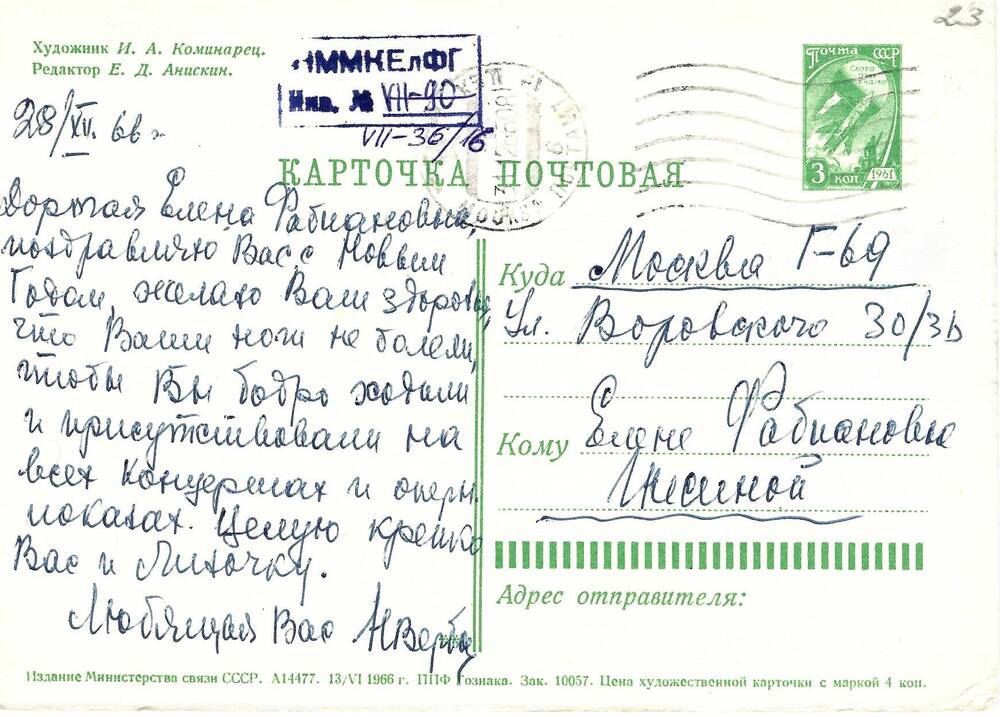 23
Художник И. А. Коминарец.
Редактор Е. Д. Анискин.
ММКЕлФГ
Инв. № VII-90
VII-36/16
28/XII. 66 г.
Почта СССР
3 коп 1961
КАРТОЧКА ПОЧТОВАЯ
Дорогая Елена Фабиановна,
поздравляю Вас с Новым
Годом, желаю Вам здоровья,
что Ваши ноги не болели,
чтобы Вы бодро ходили
и присутствовали на
всех концертах и оперн.
показах. Целую крепко
Вас и Литочку.
Любящая Вас НВерба
Куда Москва Г-69
Ул. Воровского 30/36
Кому Елене Фабиановне
Гнесиной
Адрес отправителя:
Издание Министерства связи СССР. А14477. 13/VI 1966 г. ППФ Гознака. Зак. 10057. Цена художественной карточки с маркой 4 коп.